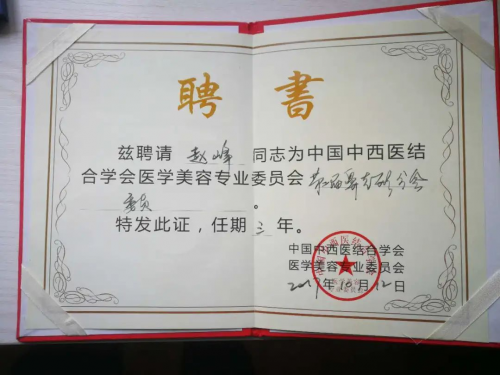 聘书
兹聘请 赵峰 同志为中国中西医结
合学会医学美容专业委员会 分会
委员 。
特发此证，任期 三 年。
中国中西医结合学会
医学美容专业委员会
2017年10月12日